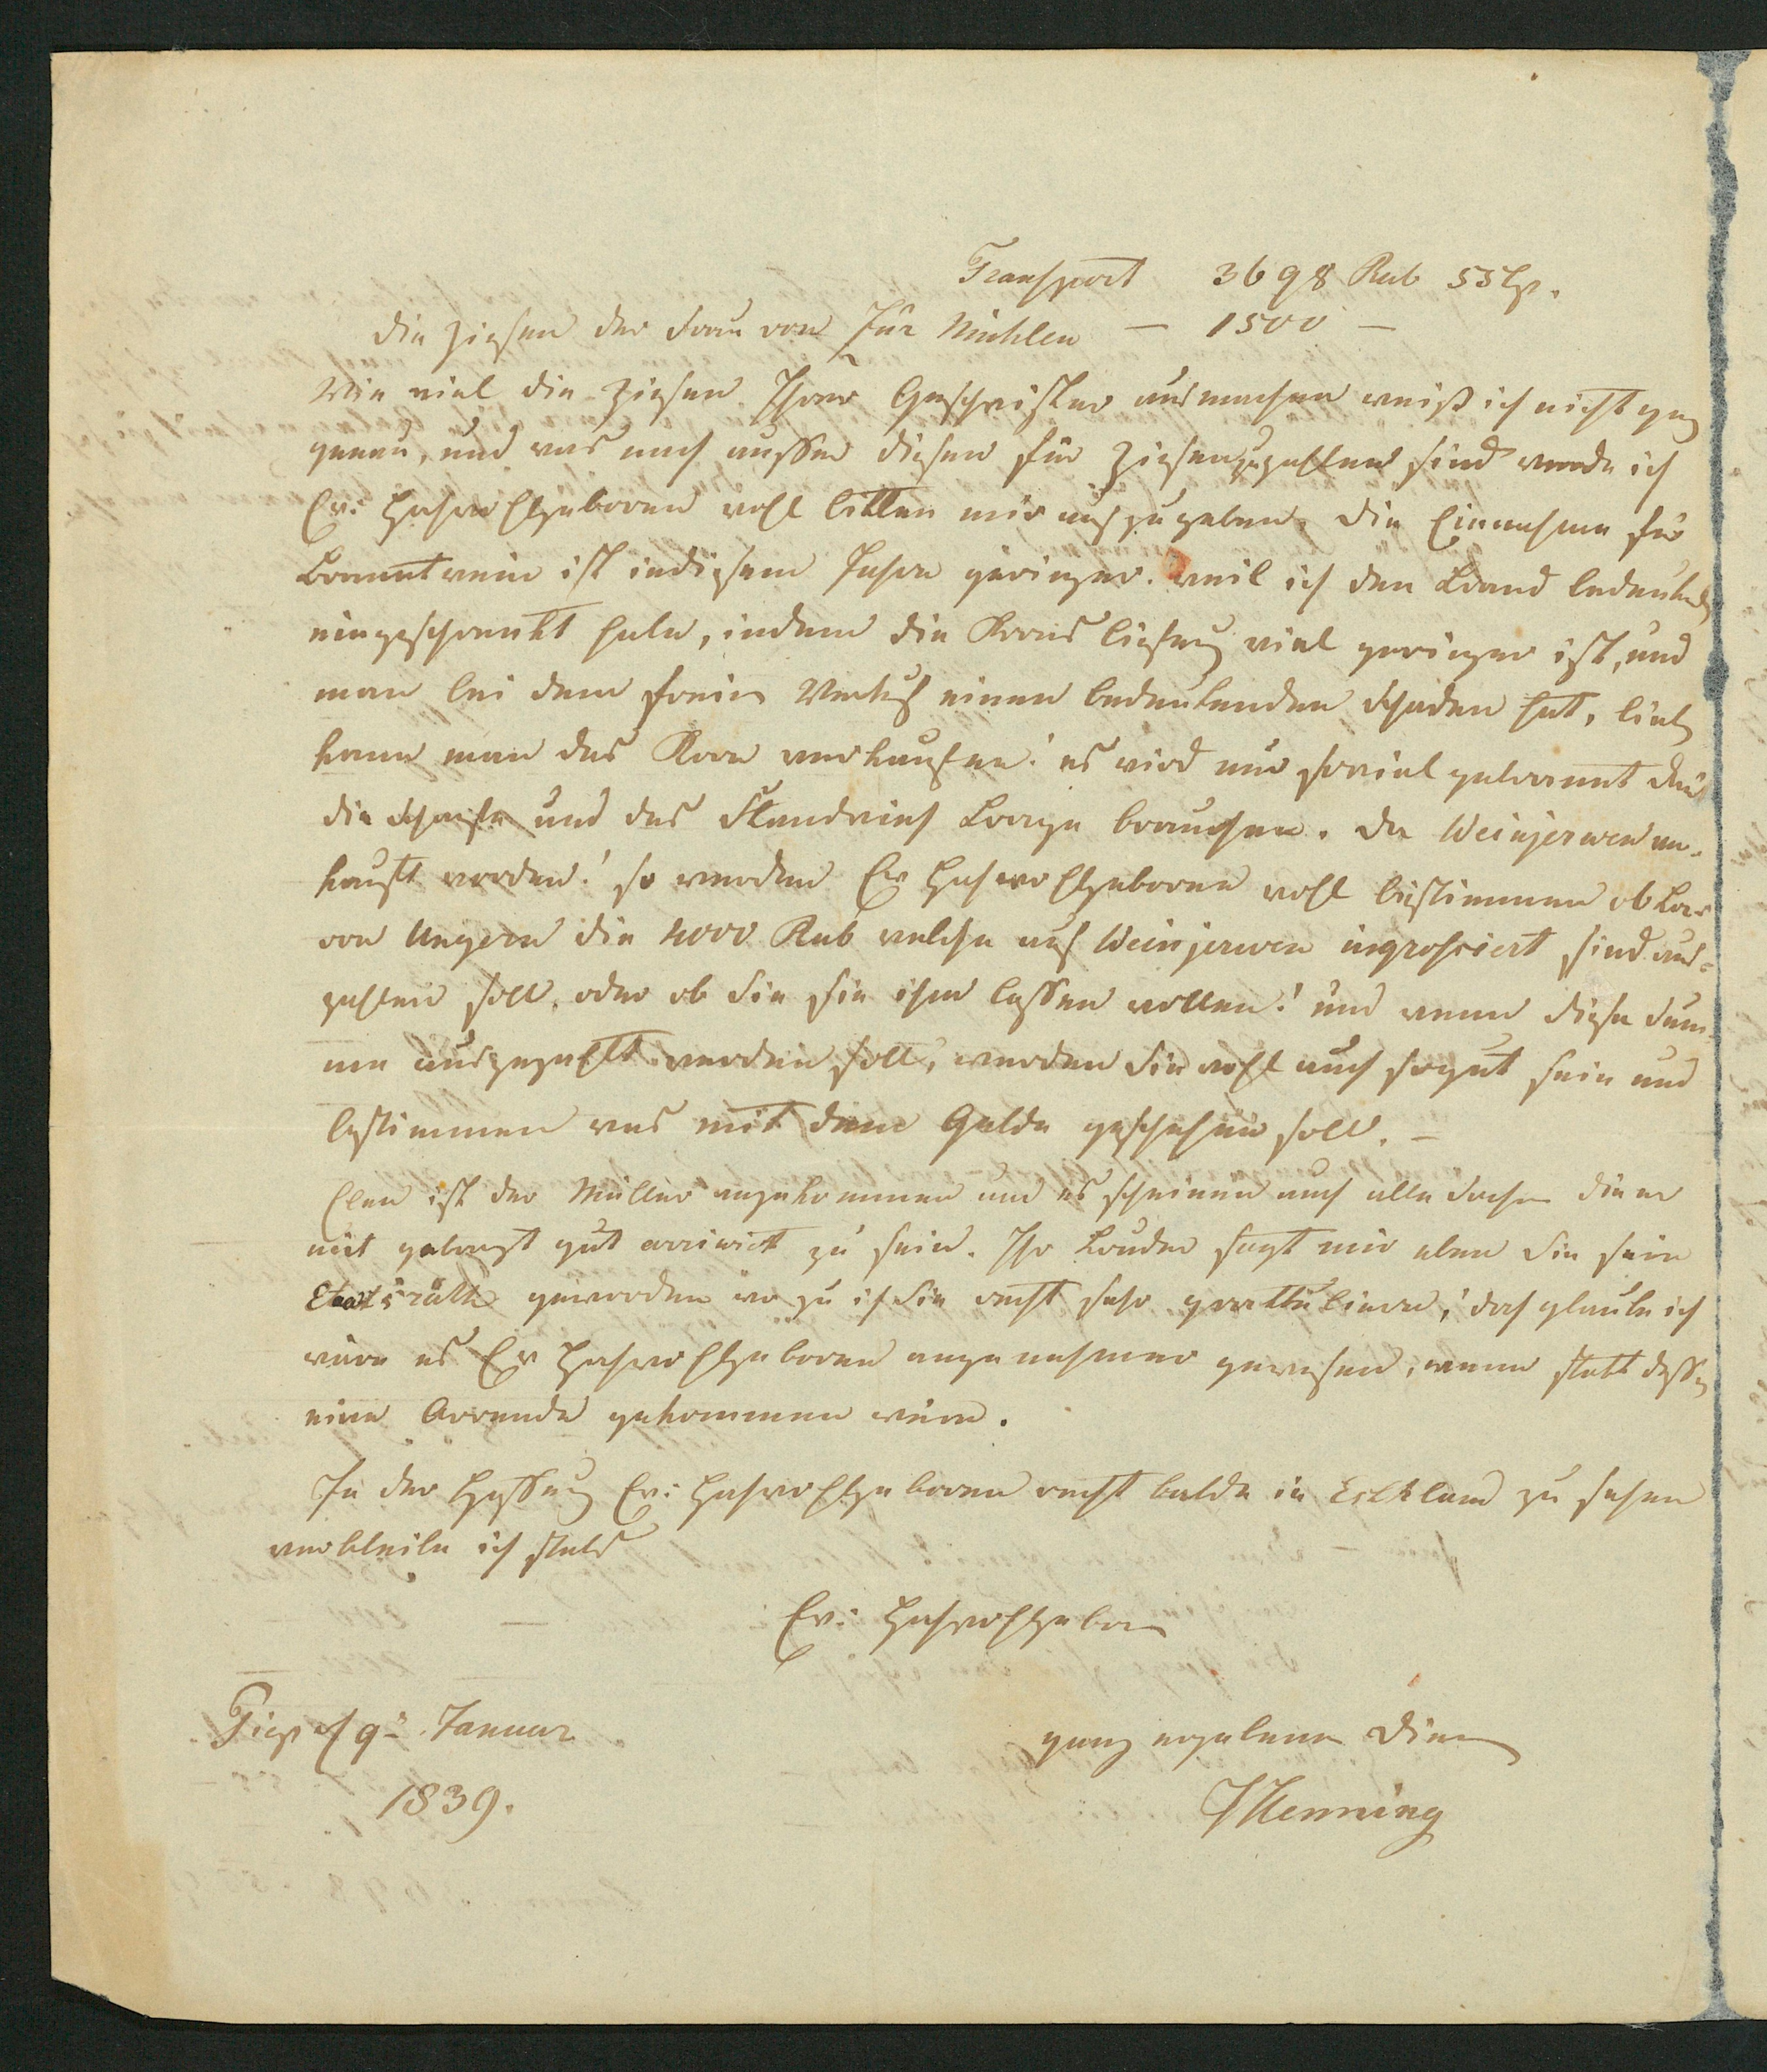 Transport 3698 Rub 55 Cp.
die Zinsen der Frau von Zur Mühlen — 1500 —
Wie viel die Zinsen Ihrer Geschwister ausmachen weiß ich nicht ganz
genau, und was noch ausser diesen für Zinsen zu zahlen sind werde ich
Ew: Hochwohlgeboren wohl bitten mir aufzugeben. Die Einnahme für
Branntwein ist in diesem Jahre geringer. weil ich den Brand bedeutend
eingeschrenkt habe, indem die Krons liefrung viel geringer ist, und
man bei dem freien Verkauf einen bedeutenden Schaden hat, lieber
kann man das Korn verkaufen! es wird nur soviel gebrannt das
die Schaafe und das Standvieh Braage brauchen. Da Weinjerwen ver-
kauft worden! so werden Ew Hochwohlgeboren wohl bestimmen ob Bar
von Ungern die 4000 Rub welche auf Weinjerwen ingrossiert sind aus-
zahlen soll, oder ob Sie sie ihm lassen wollen! und wenn diese Sum-
me ausgezahlt werden soll, werden Sie wohl auch so gut sein und
bestimmen was mit dem Gelde geschehen soll. —
Eben ist der Müller angekommen und es scheinen auch alle Sachen die er
mit gebracht gut arriwirt zu sein. Ihr Bruder sagt mir eben Sie sein
Etatsrath geworden wo zu ich Sie recht sehr grattuliere, doch glaube ich
wäre es Ew Hochwohlgeboren angenehmer gewesen, wenn statt dessen
eine Arrende gekommen wäre.
In der Hoffnung Ew: Hochwohlgeboren recht balde in Estland zu sehen
verbleibe ich stets
Ew: Hochwohlgeboren
9ⁿ Januar
ganz ergebener Diener
1839.
Henning